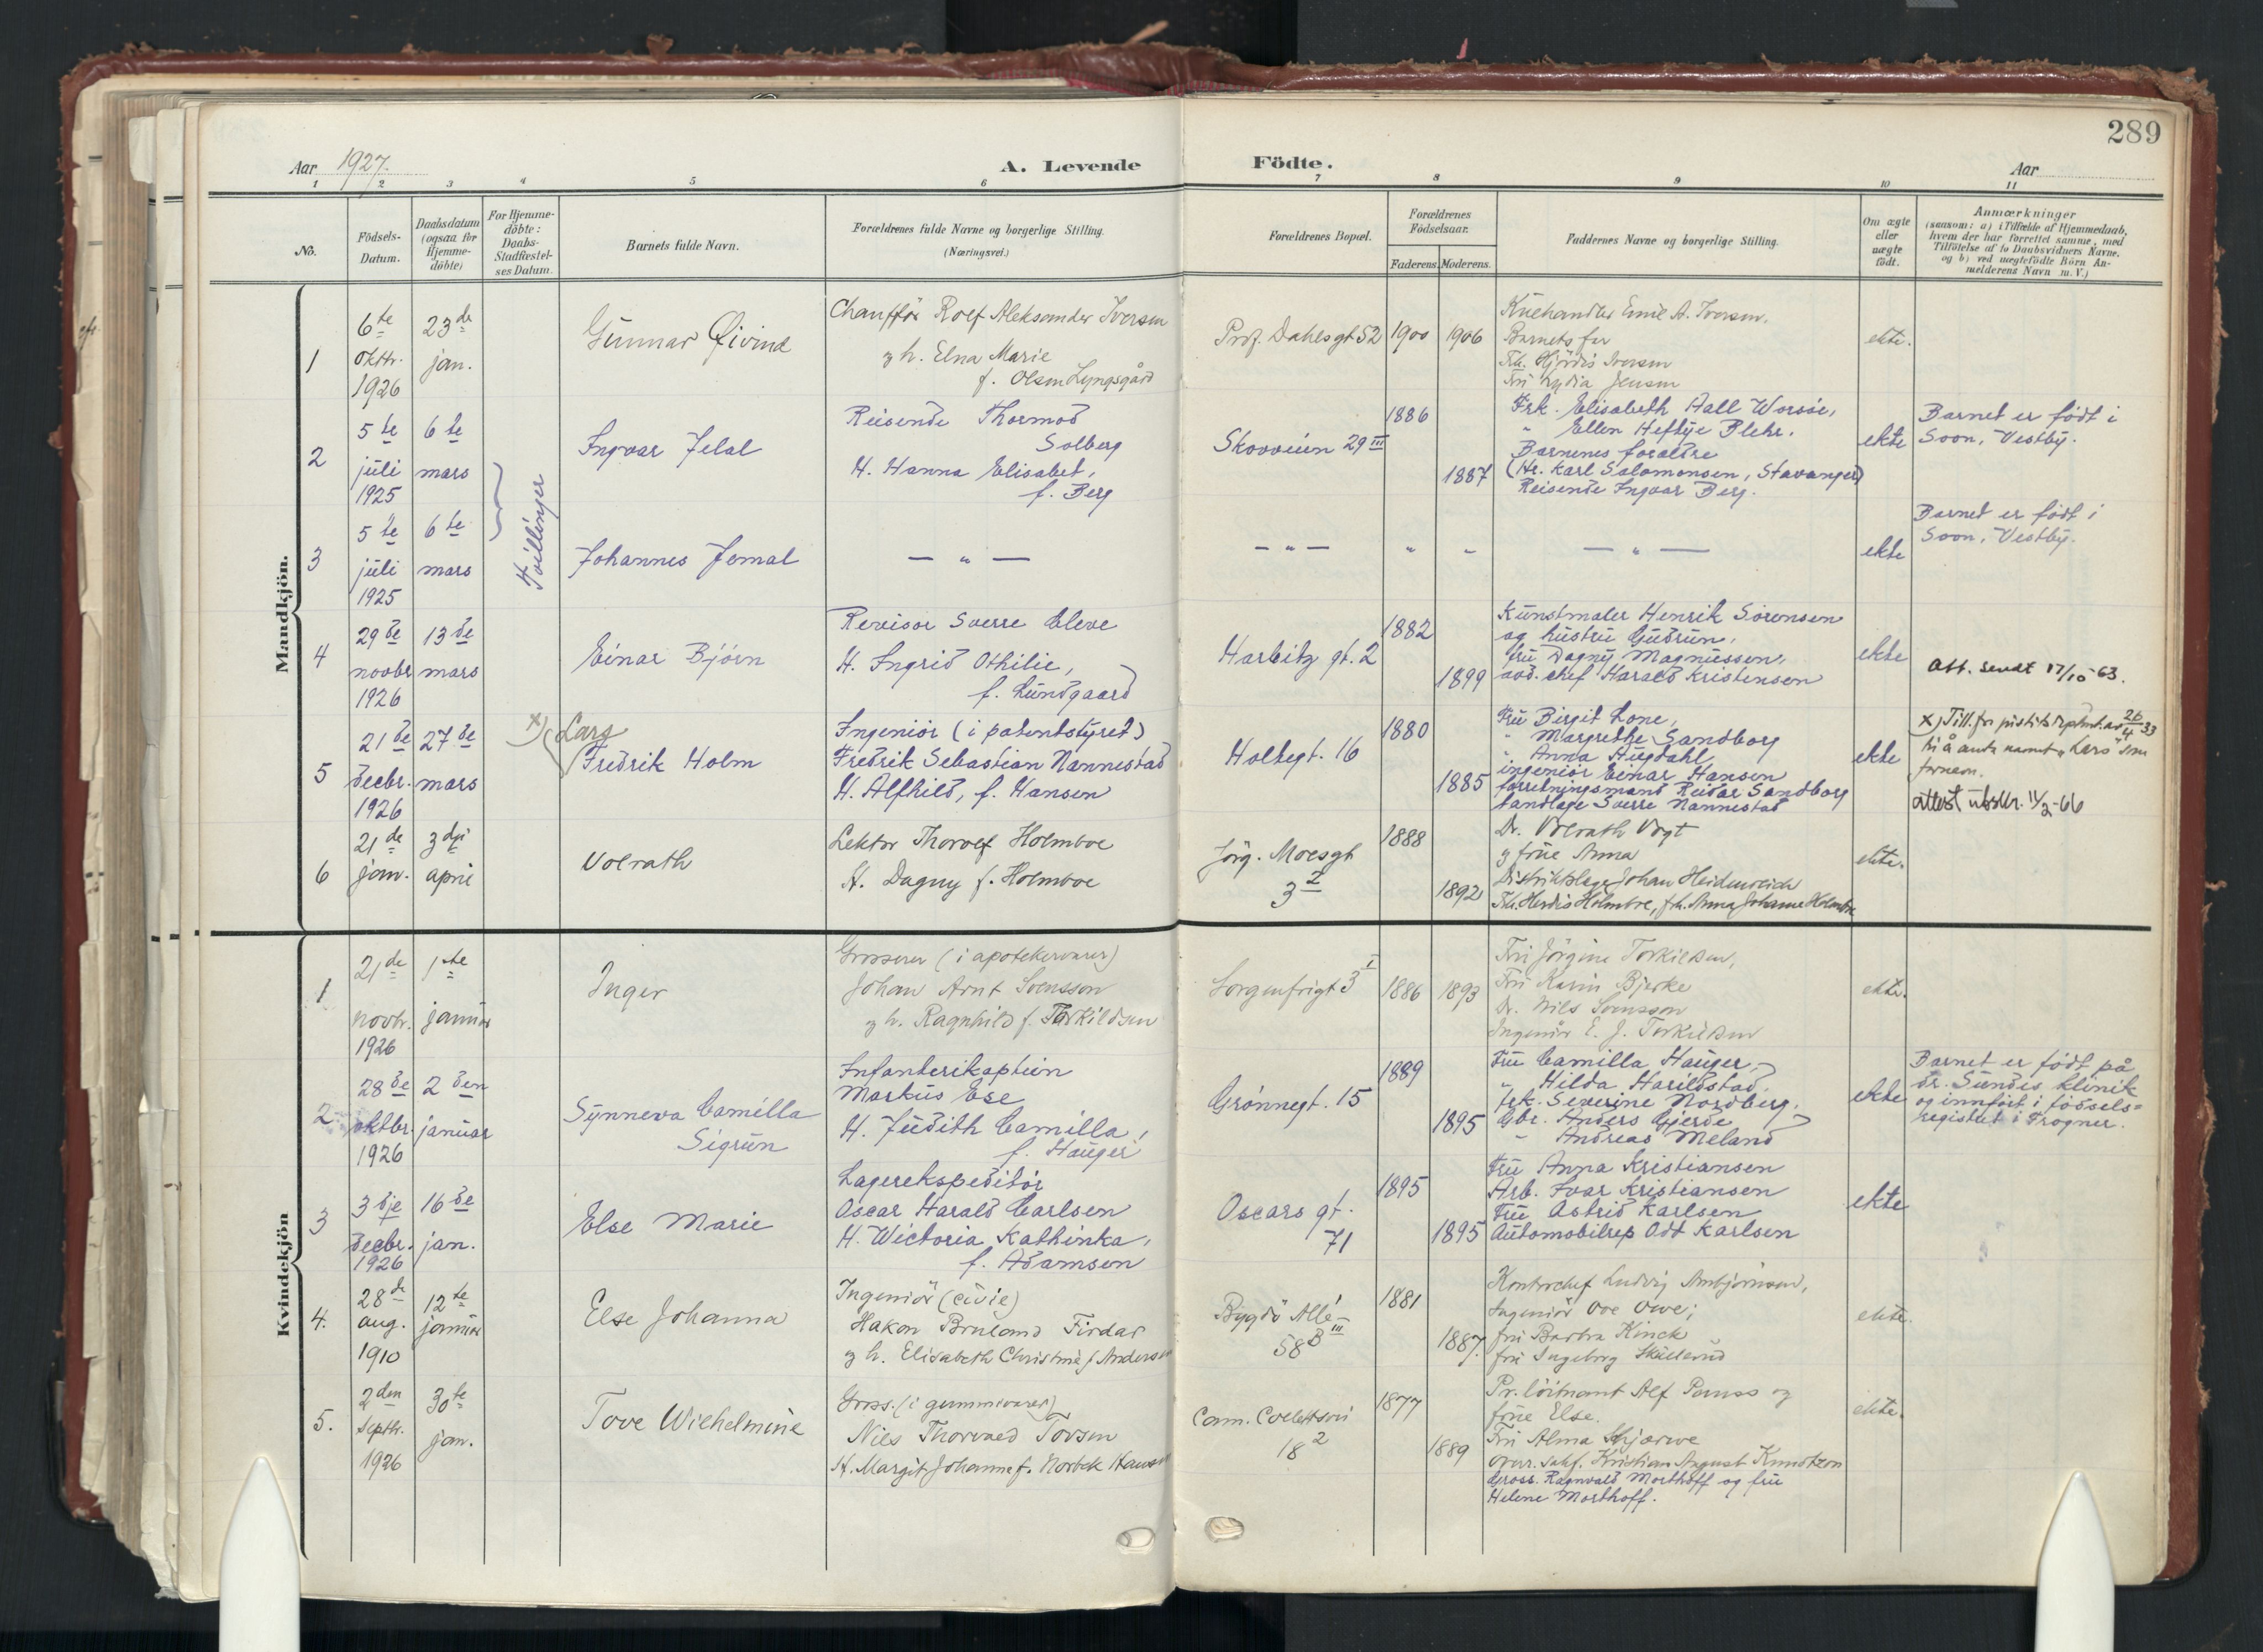 289
Aar 1927.
A. Levende Födte.
Aar
1 2 3 4 5 6 7 8 9 10 11
No.
Födsels-Datum.
Daabsdatum (ogsaa for Hjemme-döbte)
For Hjemme-döbte: Daabs-Stadfæstel-ses Datum.
Barnets fulde Navn.
Forældrenes fulde Navne og borgerlige Stilling. (Næringsvei.)
Forældrenes Bopæl.
Forældrenes Födselsaar.
Faderens. Moderens.
Faddernes Navne og borgerlige Stilling.
Om ægte eller uægte födt.
Anmærkninger
(saasom: a) i Tilfælde af Hjemmedaab,
hvem der har forrettet samme, med
Tilföielse af to Daabsvidners Navne,
og b) ved uægtefödte Börn An-
melderens Navn m. V.)
Mandkjön.
1
6te oktbr. 1926
23de jan.
Gunnar Øivind
Chaufför Rolf Aleksander Iversen
g h. Elna Marie
f. Olsen Lyngsgård
Prof. Dahlsgt 52
1900 1906
Emil A. Iversen.
Barnets far
Frk. Hjördis Iversen
Fru Lydia Jensen
ekte.
2
5te juli 1925
6te mars
Tvillinger
Ingvar Jelal
Reisende Thormod
Solberg
H. Hanna Elisabet,
f. Berg
Skovveien 29 III
1886
1887
Frk. Elisabeth Aall Worsøe,
" Ellen Heftye Blehr.
Barnenes foreldre
(Hr. Karl Salomonsen, Stavanger)
Reisende Ingvar Berg.
ekte
Barnet er født i
Soon, Vestby.
3
5te juli 1925
6te mars
Johannes Jemal
— " —
— " —
" "
— " —
ekte
Barnet er født i
Soon, Vestby.
4
29de novbr 1926
13de mars
Einar Bjørn
Revisor Sverre Cleve
H. Ingrid Othilie,
f. Lundgaard
Harbitz gt. 2
1882
1899
Kunstmaler Henrik Sørensen
og hustru Gudrun,
fru Dagny Magnussen,
avd. chef Harald Kristensen
ekte
Att. sendt 17/10-63.
5
21de decbr. 1926
27de mars
x) Lars
Fredrik Holm
Ingeniør (i patentstyret)
Fredrik Sebastian Nannestad
H. Alfhild, f. Hansen
Holtegt. 16
1880
1885
Fru Birgit Lone,
" Margrethe Sandborg
" Anna Hugdahl,
ingeniør Einar Hansen
forretningsmand Reidar Sandborg
tandlæge Sverre Nannestad
ekte
x) Till. fra 26/4-33
til å navnet "Lars" som
fornavn.
attest utskr. 11/2-66
6
21de jan.
3dje april
Volrath
Lektor Thorolf Holmboe
H. Dagny f. Holmboe
Jörg. Moesgt
3 2
1888
1892
Dr. Volrath Vogt
g frue Anna
Distriktslæge Johan Heidenreich
Frk. Herdis Holmboe, frk. Anna Johanne Holmboe
ekte.
Kvindekjön
1
21de novbr. 1926
1ste januar
Inger
Grosserer (i apotekervarer)
Johan Arnt Svensson
g h. Ragnhild f. Torkildsen
Sorgenfrigt 3 I
1886 1893
Fru Jörgine Torkildsen,
Fru Karin Bjerke
Dr. Nils Svensson
Ingeniör E. J. Torkildsen
ekte.
2
28de oktbr. 1926
2den januar
Synneva Camilla
Sigrun
Infanterikaptein
Markus Ese
H. Judith Camilla,
f. Hauger
Grønnegt. 15
1889
1895
Fru Camilla Hauger,
" Hilda Harildstad,
frk. Severine Nordberg,
Gbr. Anders Gjerde
" Andreas Meland
ekte
Barnet er født på
dr. Sundes klinik
og innført i fødsels=
registret i Frogner.
3
3dje decbr. 1926
16de jan.
Else Marie
Lagerekspeditør
Oscar Harald Carlsen
H. Wictoria Kathinka,
f. Adamsen
Oscars gt.
71
1895
1895
Fru Anna Kristiansen
Arb. Ivar Kristiansen
Fru Astrid Karlsen
Automobilrep Odd Karlsen
ekte
4.
28de aug. 1910
12te januar
Else Johanna
Ingeniör (civil)
Hakon Bruland Firdar
g h. Elisabeth Christine f. Andersen
Bygdö Allé
58B III
1881
1887.
Kontorchef Ludvig Ambjörnsen,
Ingeniör Ove Owe;
fru Barbra Kinck
fru Ingeborg Skullerud
ekte.
5.
2den septbr. 1926
30te jan.
Tove Wilhelmine
Gross. (i gummivarer)
Nils Thorvald Tovsen
H. Margit Johanne f. Norbek Hansen
Cam. Collettsvei
18 2
1877
1889
Pr. löitnant Alf Pauss og
frue Else.
Fru Alma Skjærve
Kristian August Knudtzon
Gross. Ragnvald Morthoff og frue
Helene Morthoff.
ekte.